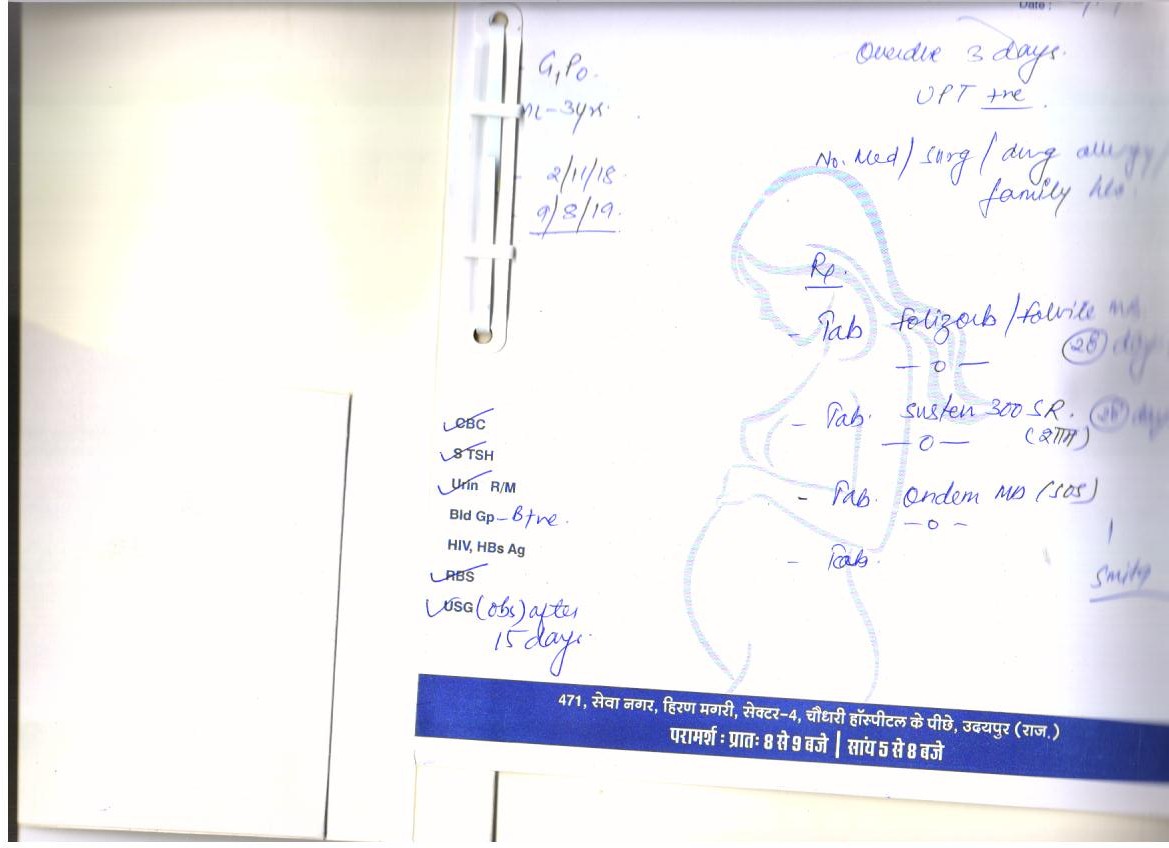 Date :
G1P0.
ML-3yrs.
2/11/18
9/8/19.
Overdue 3 days.
UPT +ve.
No. Med/surg/drug allergy/
family h/o.
Rx.
- Tab folizorb/folvite
28 days
— o —
- Tab. Susten 300 SR. 28 days
— o — (रात)
- Tab. Ondem MD (SOS)
— o —
- Tab.
CBC
S TSH
Urin R/M
Bld Gp - B+ve.
HIV, HBs Ag
RBS
USG (obs) after
15 days.
471, सेवा नगर, हिरण मगरी, सेक्टर-4, चौधरी हॉस्पीटल के पीछे, उदयपुर (राज.)
परामर्श : प्रातः 8 से 9 बजे | सांय 5 से 8 बजे